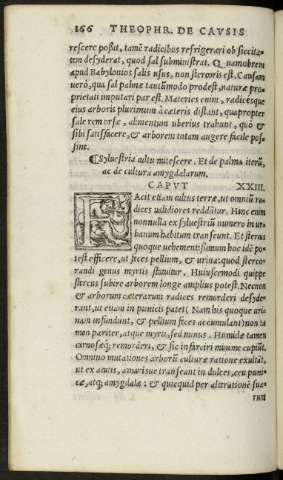 166 THEOPHR. DE CAVSIS
rescere possit, tamē radicibus refrigerari ob siccita
tem desyderat, quod sal subministrat. Quamobrem
apud Babylonios salis usus, non stercoris est. Causam
uerò, qua sal palmæ tantūmodo prodest, naturæ pro-
prietati imputari par est. Materies enim, radicesque
eius arboris plurimum à cæteris distant, quapropter
sale remorsæ, alimentum uberius trahunt, quò &
sibi satisfacere, & arborem totam augere facile pos-
sint.
¶ Syluestria cultu mitescere. Et de palma iterū,
ac de cultura amygdalarum.
CAPVT XXIII.
FAcit etiam cultus terræ, ut omniū ra
dices ualidiores reddātur. Hinc enim
nonnulla ex syluestriū numero in ur-
banum habitum transeunt. Et stercus
quoque uehementissimum hoc idē po-
test efficere, ut feces pellium, & urina: quod sterco-
randi genus myrtis statuitur. Huiuscemodi quippe
stercus subire arborem longe amplius potest. Necnon
& arborum cæterarum radices remorderi desyde-
rant, ut etiam in punicis patet (Nam his quoque uri-
nam infundunt, & pellium fæces accumulant) non ta
men pariter, atque myrtis, sed minus. Humidæ tamen
carnosæq; remorderi, & sic infarciri minime cupiūt.
Omnino mutationes arborū culturæ ratione exultāt,
ut ex acutis, amarisue transeant in dulces, ceu puni-
cæ, atq; amygdalæ: & quicquid per alterationē sua-